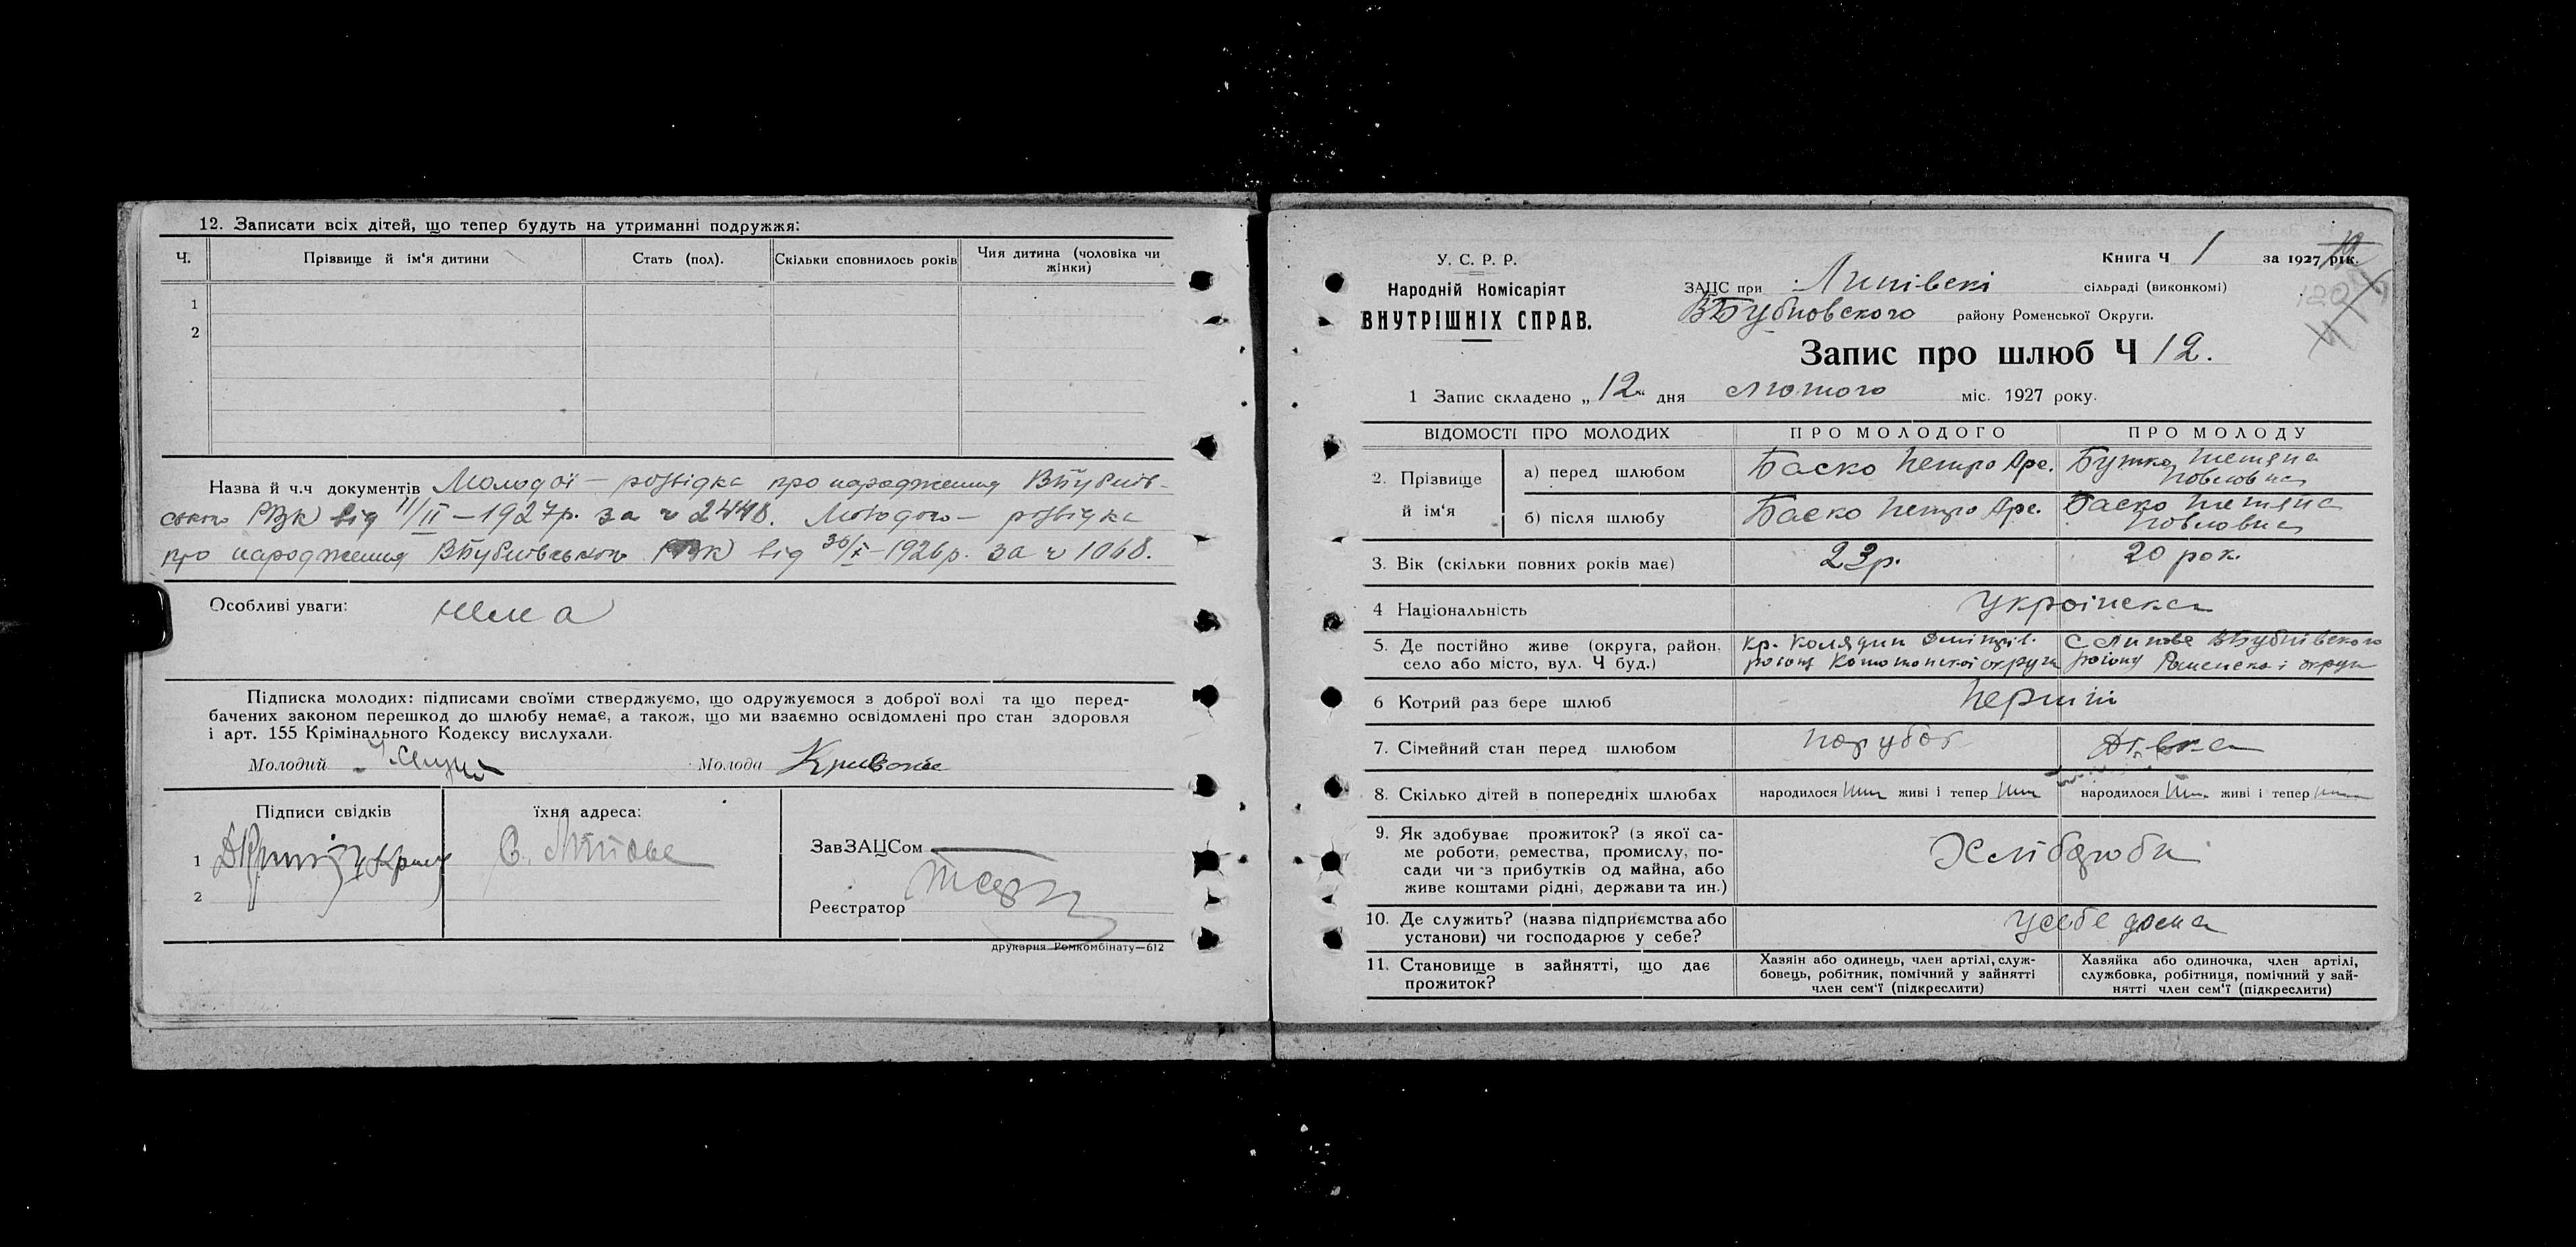 12. Записати всіх дітей, що тепер будуть на утриманні подружжя:
Ч. Прізвище й ім'я дитини Стать (пол). Скільки сповнилось років Чия дитина (чоловіка чи жінки)
1
2
Назва й ч.ч документів Молодої — розвідка про народження ВБубнів-
ського РВК від 11/II — 1927р. за ч 2448. Молодого — розвідка
про народження ВБубнівського РВК від 30/X — 1926р. за ч 1068.
Особливі уваги: нема
Підписка молодих: підписами своїми стверджуємо, що одружуємося з доброї волі та що перед-
бачених законом перешкод до шлюбу немає, а також, що ми взаємно освідомлені про стан здоровля
і арт. 155 Крімінального Кодексу вислухали.
Молодий Молода
Підписи свідків їхня адреса:
1 С. Липове
2
ЗавЗАЦСом
Реєстратор
друкарня Ромкомбінату—612
У. С. Р. Р.
Народній Комісаріят
ВНУТРІШНІХ СПРАВ.
Книга Ч 1 за 1927 рік.
ЗАЦС при Липівскі сільраді (виконкомі)
ВБубновского району Роменської Округи.
Запис про шлюб Ч 12.
1 Запис складено „12" дня лютого міс. 1927 року.
ВІДОМОСТІ ПРО МОЛОДИХ ПРО МОЛОДОГО ПРО МОЛОДУ
2. Прізвище й ім'я
а) перед шлюбом Баско Петро Арс. Бутко Тетяна Повловна
б) після шлюбу Баско Петро Арс. Баско Тетяна Повловна
3. Вік (скільки повних років має) 23р. 20 рок.
4 Національність Українська
5. Де постійно живе (округа, район, Кр. Колядин Дмітрів. С Липове ВБубнівского
село або місто, вул. Ч буд.) району Конотопскої округи району Роменскої округи
6 Котрий раз бере шлюб перший
7. Сімейний стан перед шлюбом парубок Дівка
8. Скілько дітей в попередніх шлюбах народилося живі і тепер народилося живі і тепер
9. Як здобуває прожиток? (з якої са-
ме роботи, ремества, промислу, по-
сади чи з прибутків од майна, або
живе коштами рідні, держави та ин.)
Хліброби
10. Де служить? (назва підприємства або
установи) чи господарює у себе?
усебе дома
11. Становище в зайнятті, що дає
прожиток?
Хазяін або одинець, член артілі, служ-
бовець, робітник, помічний у зайнятті
член сем'ї (підкреслити)
Хазяйка або одиночка, член артілі,
службовка, робітниця, помічний у зай-
нятті член сем'ї (підкреслити)